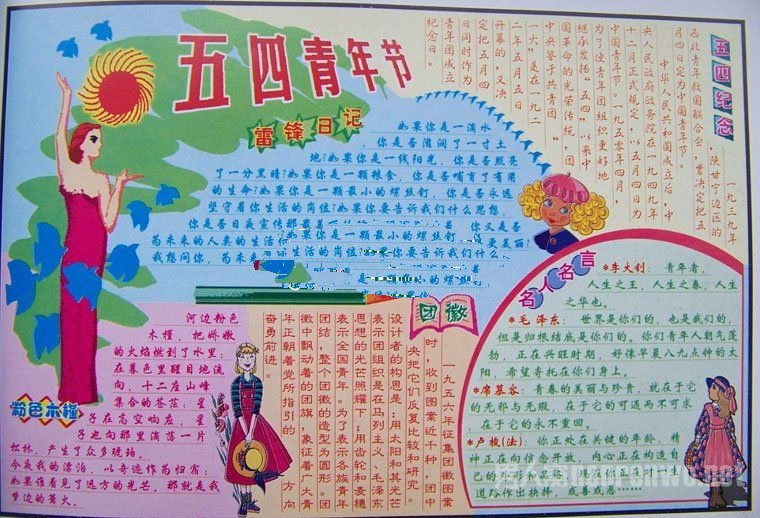 五四青年节
雷锋日记
如果你是一滴水
你是否滋润了一寸土
地?如果你是一线阳光，你是否照亮
了一分黑暗?如果你是一颗粮食，你是否哺育了有用
的生命?如果你是一颗最小的螺丝钉，你是否永远
坚守着你生活的岗位?如果你要告诉我们什么思想，
你是否日夜宣传那最
为未来的人类的生活
我想问你，为未来
五四纪念
一九三九年
，陕甘宁边区的
西北青年救国联合会，曾决定把五
月四日定为中国青年节。
中华人民共和国成立后，中
央人民政府政务院在一九四九年
十二月正式规定，以五月四日为
中国青年节。一九五零年四月，
为了使青年团组织更好地
继承发扬“五四”以来中
国革命的光荣传统，团
中央鉴于共青团“
一大”是在一九二
二年五月五日
开幕的，又决
定把五月四
日同时作为
青年团成立
纪念日。
名人名言
*李大钊：青年者，
人生之王，人生之春，人生
之华也。
*毛泽东：世界是你们的，也是我们的，
但是归根结底是你们的。你们青年人朝气蓬
勃，正在兴旺时期，好像早晨八九点钟的太
阳，希望寄托在你们身上。
*席慕容：青春的美丽与珍贵，就在于它
的无邪与无瑕，在于它的可遇而不可求
在于它的永不重回。
*卢梭(法)：你正处在关键的年龄，精
神正在向信念开放，内心正在构造自
己的
道路作出抉择，或善或恶……
团徽
一九五六年征集团徽图案
时，收到图案近千种，团中
央把它们反复比较和研究。
设计者的构思是：用太阳和其光芒
表示团组织是在马列主义、毛泽东
思想的光芒照耀下；用齿轮和麦穗
表示全国青年。为了表示各族青年
团结，整个团徽的造型为圆形。团
徽中飘动着的团旗，象征着广大青
年正朝着党所指引的方向
奋勇前进。
粉色木槿
河边粉色
木槿，把娇嫩
的火焰燃到了水里；
在暮色里醒目地流
向，十二座山峰
集合的苍茫；星
子在高空响应，星
子也向那里滴落一片
松林，产生了众多琥珀。
今夜我的漂泊，以奇迹作为归宿；
如果谁看见了远方的光芒，那就是我
梦边的篝火。